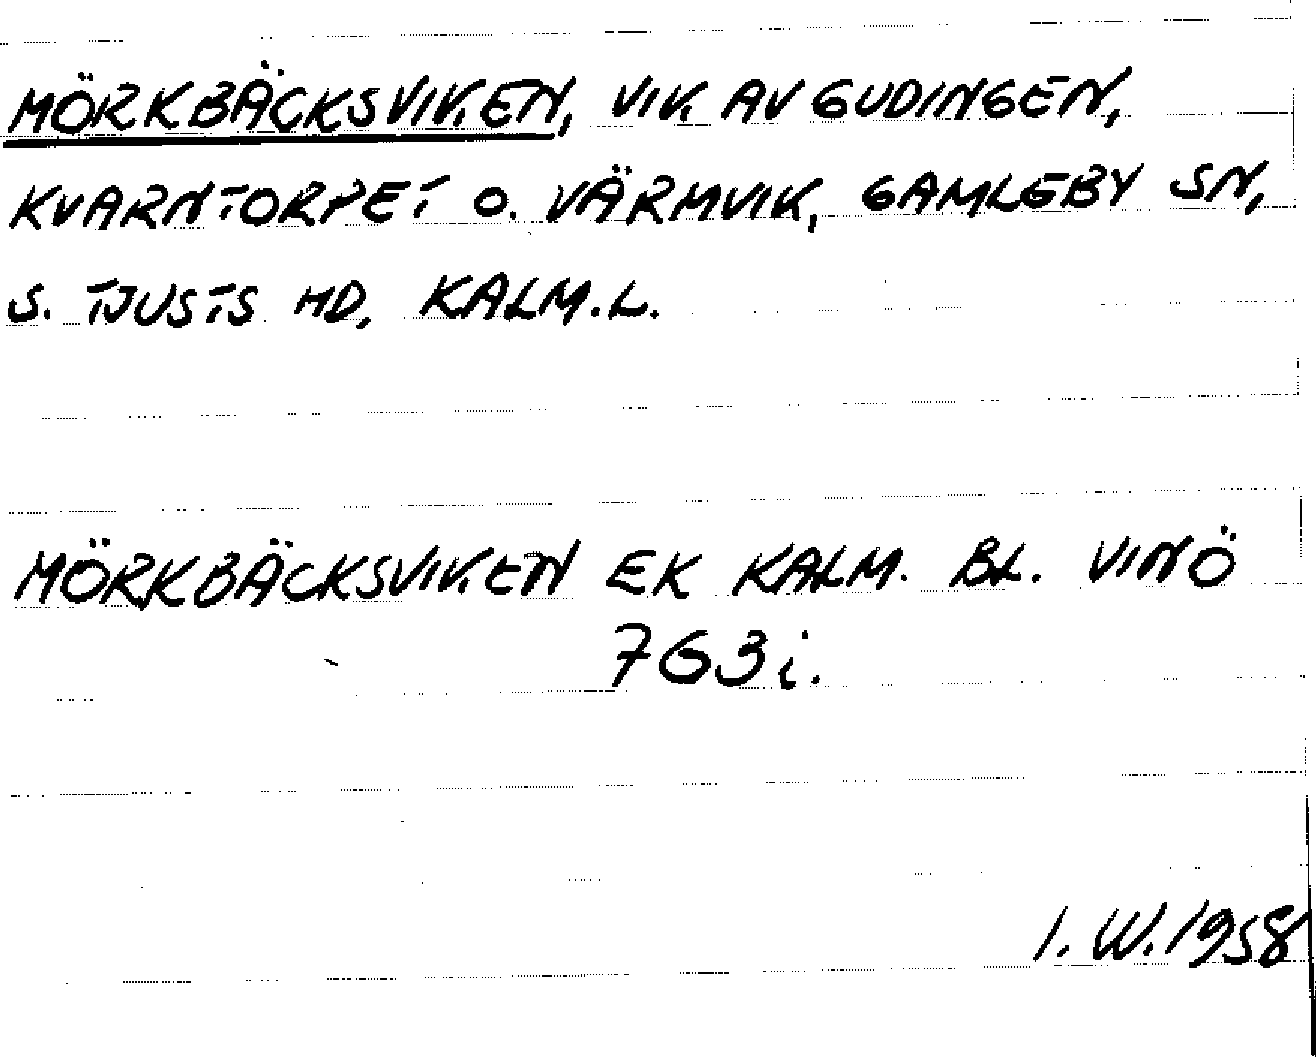 MÖRKBÄCKSVIKEN, VIK AV GUDINGEN,
KVARNTORPET O. VÄRMVIK, GAMLEBY SN,
S. TJUSTS HD, KALM.L.
MÖRKBÄCKSVIKEN EK KALM. BL. VINÖ
763i.
I. W. 1958